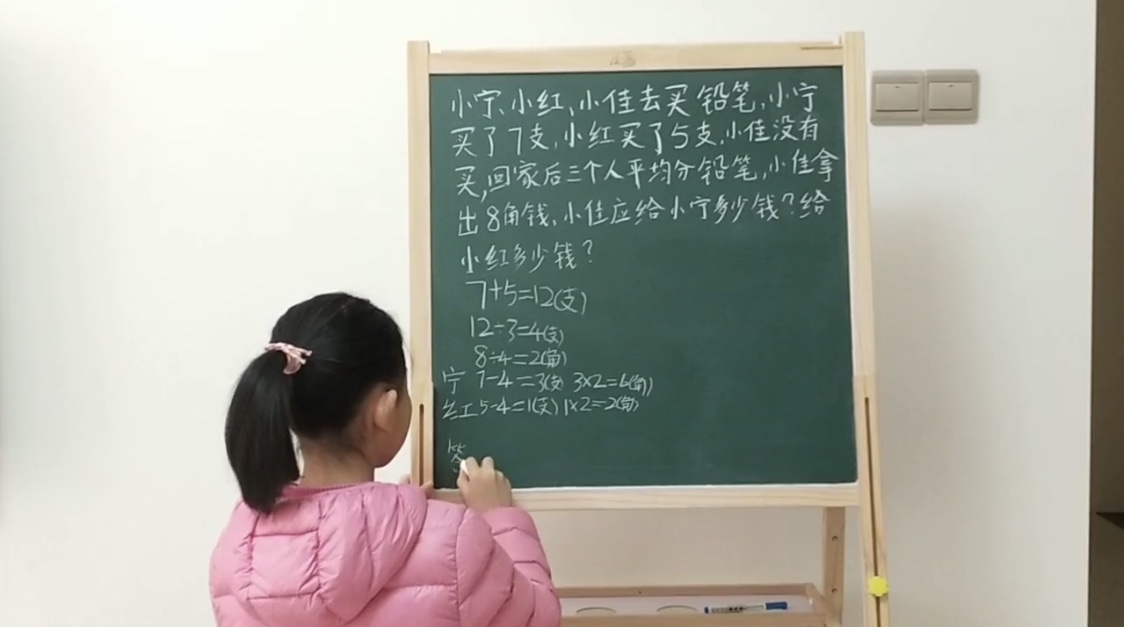 小宁、小红、小佳去买铅笔,小宁
买了7支,小红买了5支,小佳没有
买,回家后三个人平均分铅笔,小佳拿
出8角钱,小佳应给小宁多少钱?给
小红多少钱?
7+5=12(支)
12÷3=4(支)
8÷4=2(角)
宁 7-4=3(支) 3×2=6(角)
红 5-4=1(支) 1×2=2(角)
答